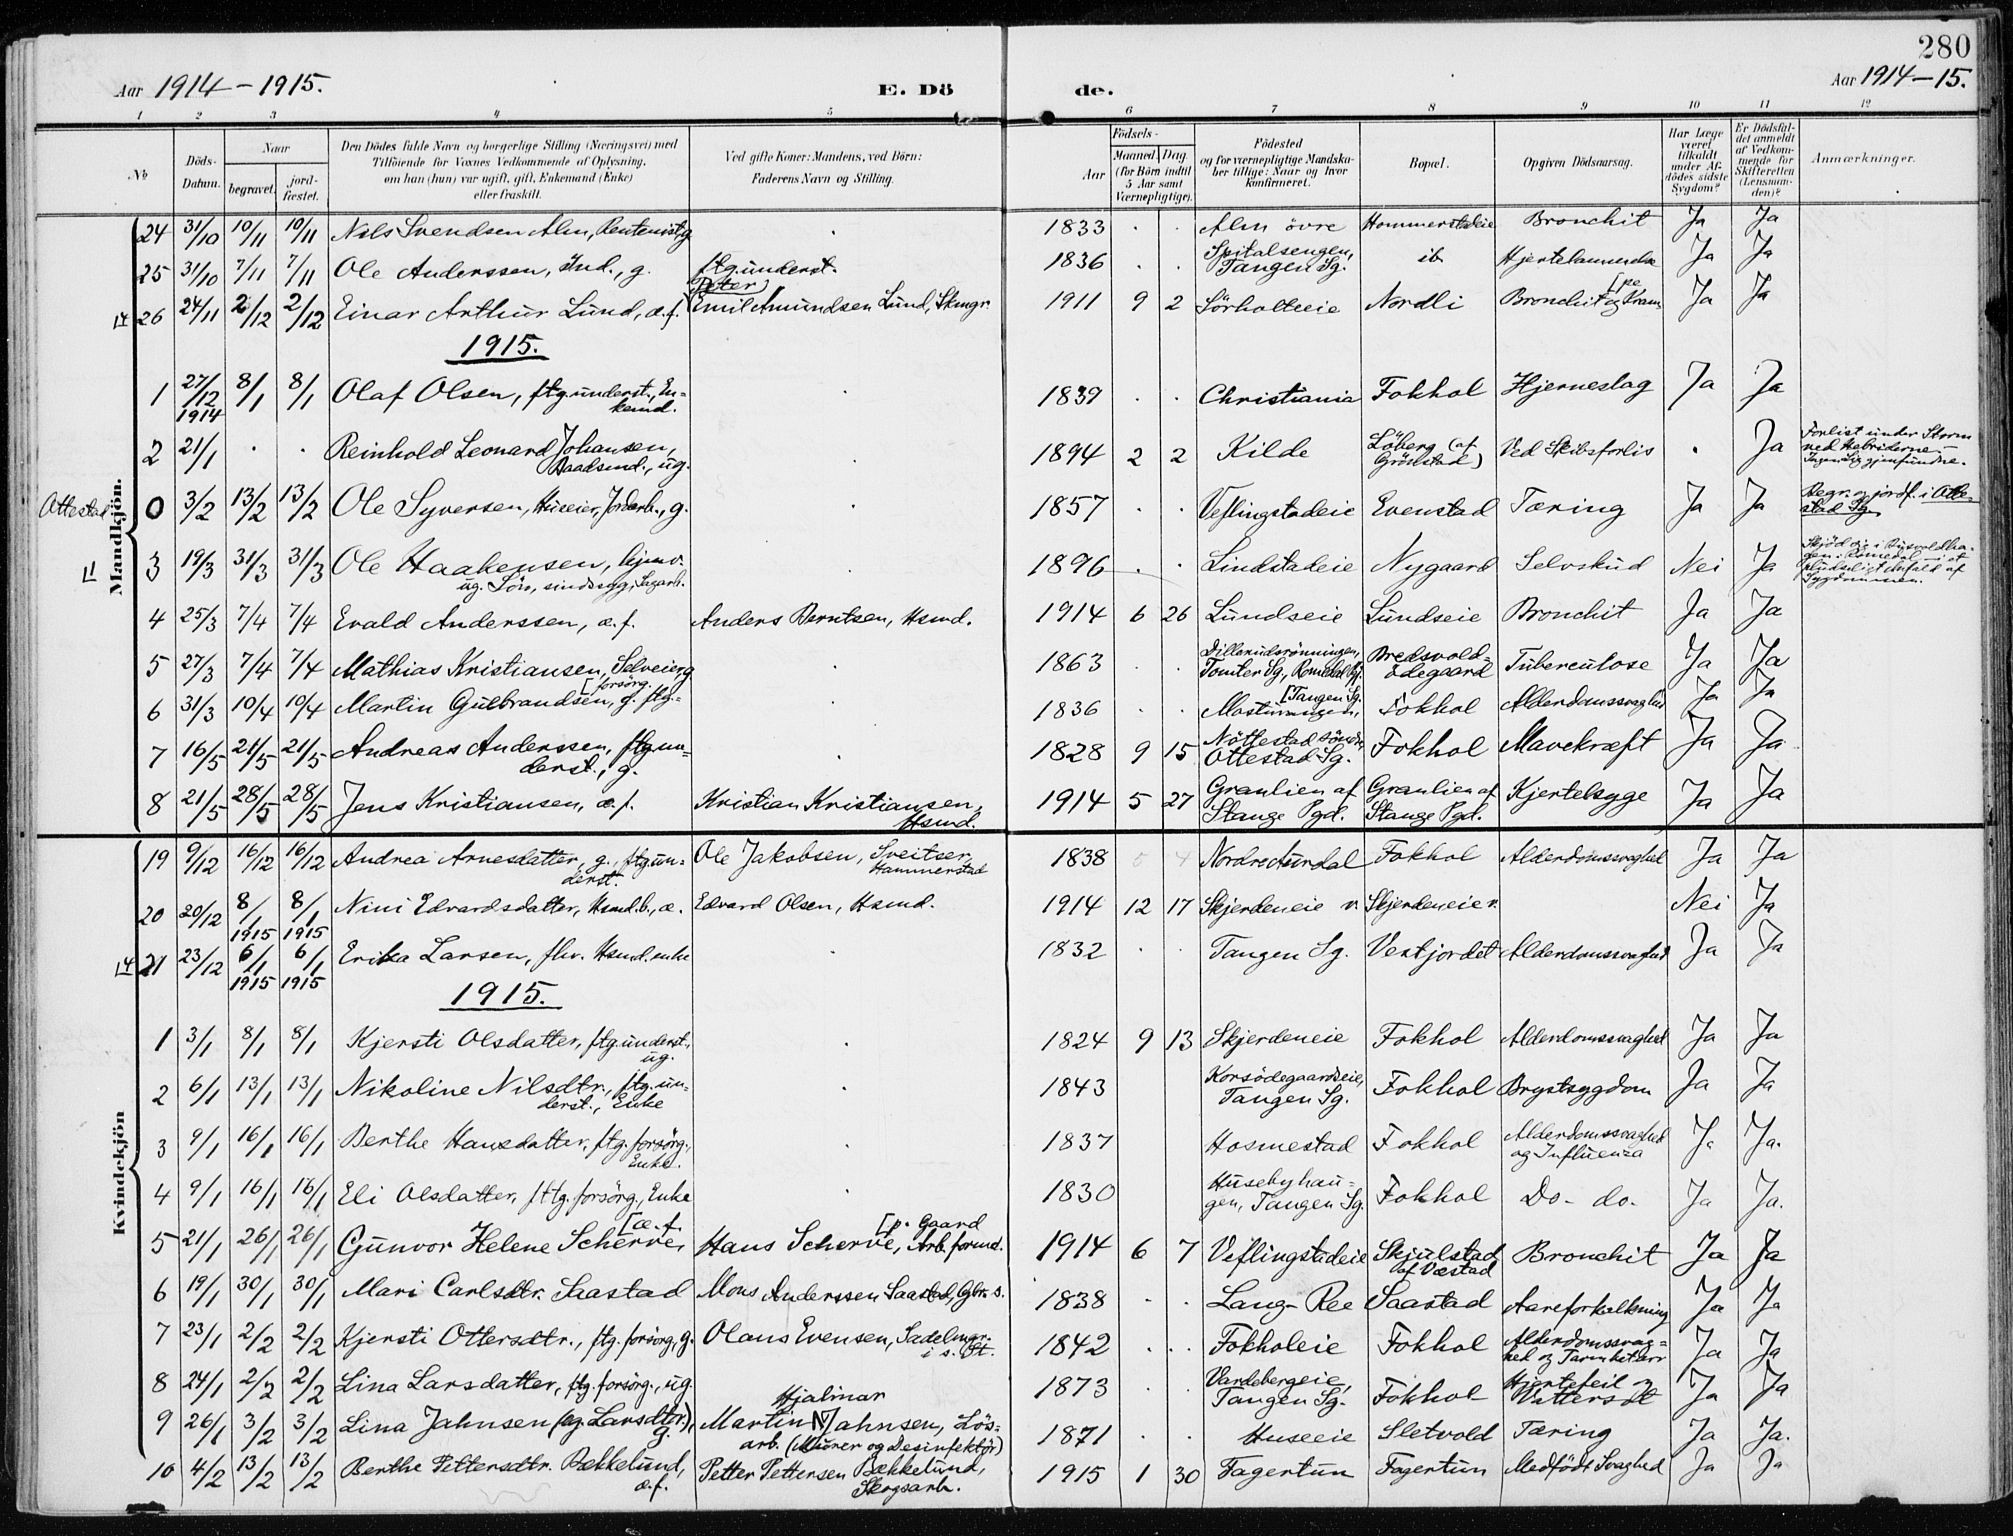 280
Aar 1914 – 1915. E. Dö de. Aar 1914 – 15.
1 2 3 4 5 6 7 8 9 10 11 12
No Döds-Datum. Naar begravet. jordfæstet. Den Dödes fulde Navn og borgerlige Stilling (Næringsvei) med Tilföiende for Voxnes Vedkommende af Oplysning, om han (hun) var ugift, gift, Enkemand (Enke) eller fraskilt. Ved gifte Koner: Mandens, ved Börn: Faderens Navn og Stilling. Aar Födsels- Maaned. Dag. (for Börn indtil 5 Aar samt Værnepligtige). Födested og for værnepligtige Mandskaber tillige: Naar og hvor konfirmeret. Bopæl. Opgiven Dödsaarsag. Har Læge været tilkaldt under Afdödes sidste Sygdom? Er Dödsfaldet anmeldt af Vedkommende for Skifteretten (Lensmanden)? Anmærkninger.
Mandkjön.
24 31/10 10/11 10/11 Nils Svendsen Alm, Rentenist, g. 1833 Alm övre Hommerstadeie Bronchit Ja Ja
25 31/10 7/11 7/11 Ole Anderssen, Ind., g. ftg. underst. 1836 Spitalsengen, Tangen Sg. ib Hjertelammelse Ja Ja
26 24/11 2/12 2/12 Einar Arthur Lund, æ.f. (Peter) Emil Amundsen Lund, Skmgr. 1911 9 2 Sörholteie Nordli Bronchit og Krampe Ja Ja
1915.
1 27/12 1914 8/1 8/1 Olaf Olsen, ftg. underst., Enkemd. 1839 Christiania Fokhol Hjerneslag Ja Ja
2 21/1 Reinhold Leonard Johansen, Baadsmd., ug. 1894 2 2 Kilde Löberg (af Grönstad) Ved Skibsforlis Ja Forlist under Storm ved Hebriderne – Ingen Lig gjenfundne.
Ottestad 0 3/2 13/2 13/2 Ole Syversen, Huseier, Jordarb., g. 1857 Veflingstadeie Evenstad Tæring Ja Ja Begr. og jordf. i Ottestad Sg.
3 19/3 31/3 31/3 Ole Haakensen, hjmv. ug. Sön, sindssyg, Sagarb. 1896 Lindstadeie Nygaard Selvskud Nei Ja
4 25/3 7/4 7/4 Evald Anderssen, æ.f. Anders Berntsen, Hsmd. 1914 6 26 Lundseie Lundseie Bronchit Ja Ja
5 27/3 7/4 7/4 Mathias Kristiansen, Selveier, g. 1863 Tomter Sg., Romedal Pgj. Bredsvoldödegaard Tuberculose Ja Ja
6 31/3 10/4 10/4 Martin Gulbrandsen, g. ftg. forsörg. 1836 Tangen Sg. Fokhol Alderdomssvaghed Ja Ja
7 16/5 21/5 21/5 Andreas Anderssen, ftg. underst., g. 1828 9 15 Nöttestad söndre, Ottestad Sg. Fokhol Mavekræft Ja Ja
8 21/5 28/5 28/5 Jens Kristiansen, æ.f. Kristian Kristiansen, Hsmd. 1914 5 27 Granlien af Stange Pgd. Granlien af Stange Pgd. Kjertelsyge Ja Ja
Kvindekjön
19 9/12 16/12 16/12 Andrea Arnesdatter, g., ftg. underst. Ole Jakobsen, Sveitser, Hammerstad 1838 Nordre Aurdal Fokhol Alderdomssvaghed Ja Ja
20 20/12 8/1 1915 8/1 1915 Nini Edvardsdatter, Hsmd.b., æ. Edvard Olsen, Hsmd. 1914 12 17 Skjerdeneie v. Skjerdeneie v. Nei Ja
21 23/12 6/1 1915 6/1 1915 Erika Larsen, fhv. Hsmd. enke 1832 Tangen Sg. Vestjordet Alderdomssvaghed Ja Ja
1915.
1 3/1 8/1 8/1 Kjersti Olsdatter, ftg. underst., ug. 1824 9 13 Skjerdeneie Fokhol Alderdomssvaghed Ja Ja
2 6/1 13/1 13/1 Nikoline Nilsdtr., ftg. underst., Enke 1843 Korsödegaardseie, Tangen Sg. Fokhol Brystsygdom Ja Ja
3 9/1 16/1 16/1 Berthe Hansdatter, ftg. forsörg., Enke. 1837 Hosmestad Fokhol Alderdomssvaghed og Influenza Ja Ja.
4 9/1 16/1 16/1 Eli Olsdatter, ftg. forsörg., Enke 1830 Husebyhaugen, Tangen Sg. Fokhol Do - do - Ja Ja.
5 21/1 26/1 26/1 Gunvor Helene Scherve, [æ.f. Hans Scherve, Arb. formd. [p. Gaard 1914 6 7 Veflingstadeie Skjulstad af Væstad Bronchit Ja Ja
6 19/1 30/1 30/1 Mari Carlsdtr. Saastad Mons Anderssen Saastad, Gbr. s. 1838 Lang-Ree Saastad Aareforkalkning Ja Ja
7 23/1 2/2 2/2 Kjersti Ottersdtr., ftg. forsörg., g. Olaus Evensen, Sadelmgr. i s. St. 1842 Fokholeie Fokhol Alderdomssvaghed og Tarmkatarr Ja Ja
8 24/1 2/2 2/2 Lina Larsdatter, ftg. forsörg., ug. 1873 Vardebergeie, Tangen Sg. Fokhol Hjertefeil og Vattersot Ja Ja
9 26/1 3/2 3/2 Lina Jahnsen (eg. Larsdtr.), g. Martin Hjalmar Jahnsen, Lösarb. (Murer og Desinfektör) 1871 Huseeie Sletvold Tæring Ja Ja.
10 4/2 13/2 13/2 Berthe Pettersdtr. Bækkelund, æ.f. Petter Pettersen Bækkelund, Skogsarb. 1915 1 30 Fagertun Fagertun Medfödt Svaghed Ja Ja